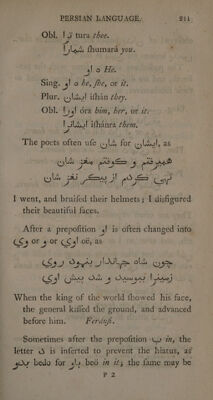 PERSIAN LANGUAGE. 211
Obl. ترا tura thee.
شمارا ſhumará you.
او o He.
Sing. او o he, ſhe, or it.
Plur. ایشان iſhán they.
Obl. اورا óra him, her, or it.
ایشانرا iſhánra them.
The poets often uſe شان for ایشان, as
همیرفتم و کوفتم مغز شان
تهی کردم از پیکر نغز شان
I went, and bruiſed their helmets; I disfigured
their beautiful faces.
After a prepoſition او is often changed into
وی or و or اوی oë, as
چون شاه جهاندار بنمود روی
زمینرا ببوسید و شد پیش اوی
When the king of the world ſhowed his face,
the general kiſſed the ground, and advanced
before him. Ferduſi.
Sometimes after the prepoſition ب in, the
letter د is inſerted to prevent the hiatus, as
بدو bedo for باو beò in it; the ſame may be
P 2